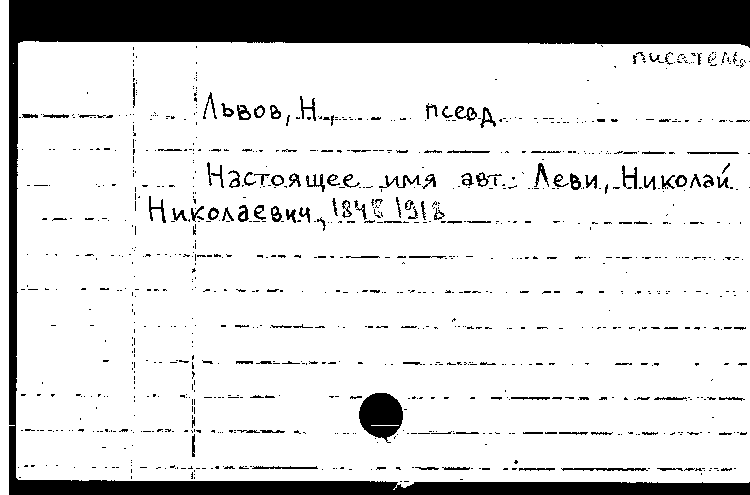 писатель
Львов, Н., псевд.
Настоящее имя авт.: Леви, Николай
Николаевич, 1848 1918